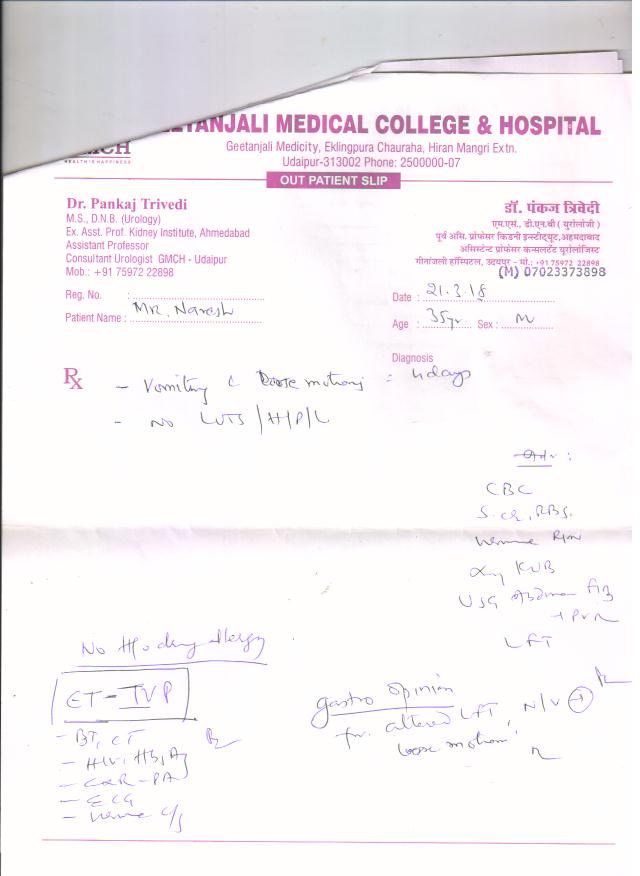 EETANJALI MEDICAL COLLEGE & HOSPITAL
MCH
HEALTH & HAPPINESS
Geetanjali Medicity, Eklingpura Chauraha, Hiran Mangri Extn.
Udaipur-313002 Phone: 2500000-07
OUT PATIENT SLIP
Dr. Pankaj Trivedi
M.S., D.N.B. (Urology)
Ex. Asst. Prof. Kidney Institute, Ahmedabad
Assistant Professor
Consultant Urologist GMCH - Udaipur
Mob.: +91 75972 22898
डॉ. पंकज त्रिवेदी
एम.एस., डी.एन.बी ( यूरोलॉजी )
पूर्व असि. प्रोफेसर किडनी इन्स्टीट्यूट,अहमदाबाद
असिस्टेन्ट प्रोफेसर कन्सलटेंट यूरोलॉजिस्ट
गीतांजली हॉस्पिटल, उदयपुर - मो.: +91 75972 22898
(M) 07023373898
Reg. No. :
Patient Name : MR. Naresh
Date : 21.3.18
Age : 35yr Sex : M
Diagnosis
Rx
- Vomiting c loose motions = 4 days
- No LUTS /H/P/L
CBC
S. cr, RBS.
Urine R/M
Xray KUB
USG Abdomen
+ PVR
LFT
No H/o drug allergy
ET - IVP
- BT, CT
- HIV, HBsAg
- CXR - PA
- ECG
- Urine C/s
gastro opinion
for altered LFT, N/V +
loose motion